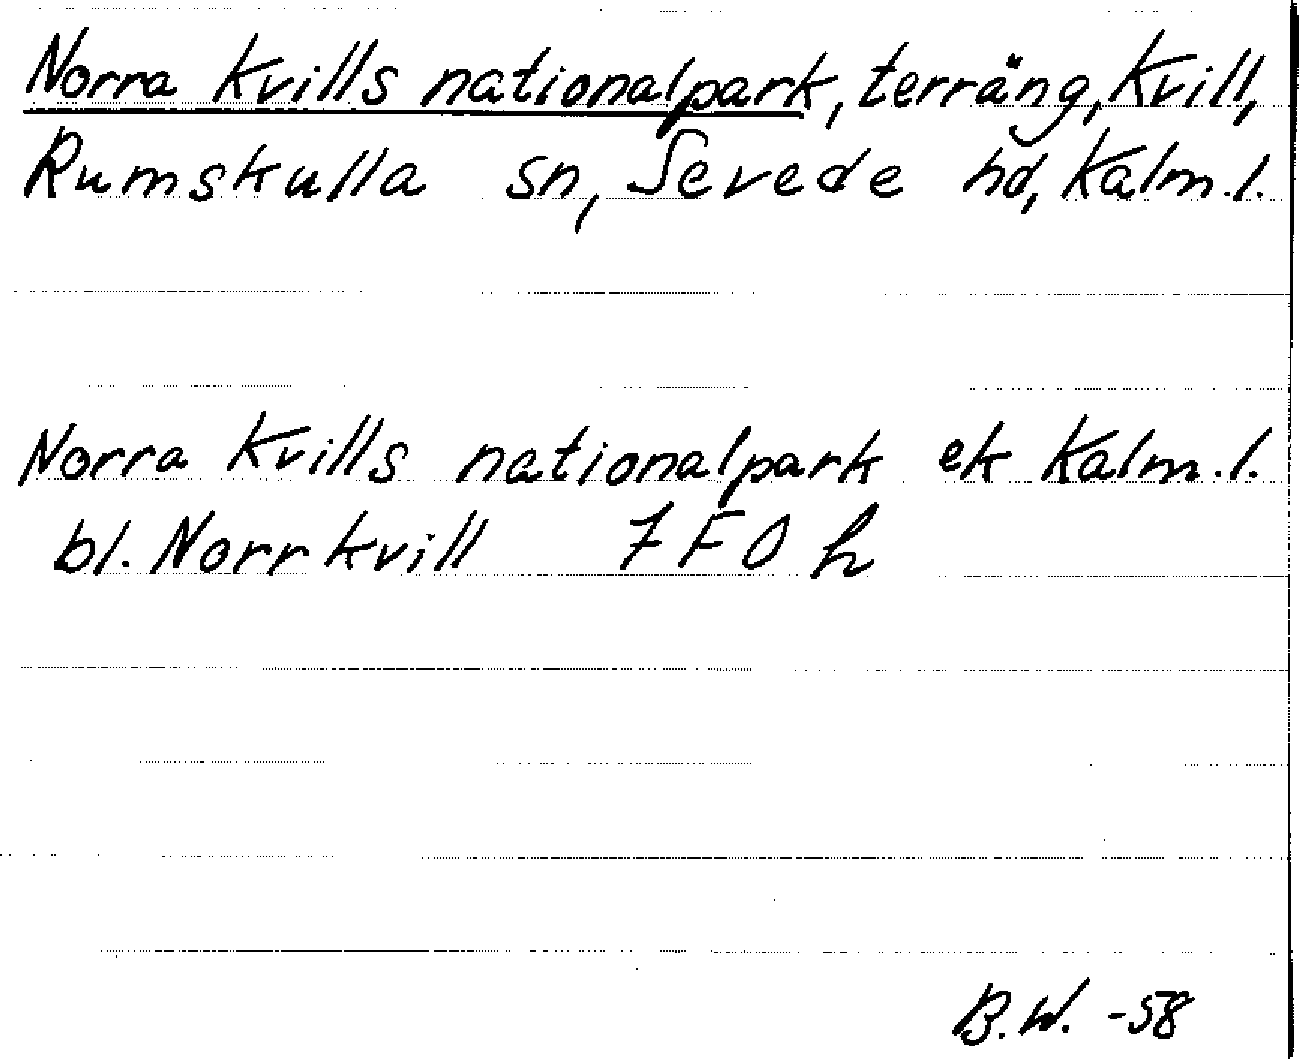 Norra Kvills nationalpark, terräng, Kvill,
Rumskulla sn, Sevede hd, Kalm.l.
Norra Kvills nationalpark ek Kalm.l.
bl. Norrkvill 7F0h
B.W. -58